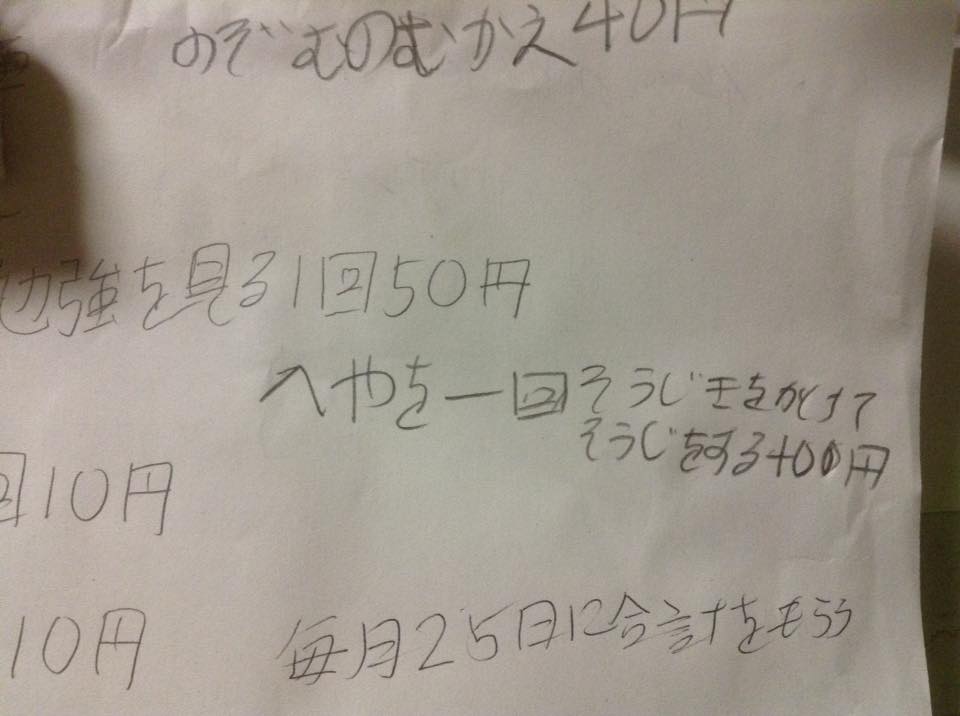 のぞむのむかえ40円
勉強を見る1回50円
へやを一回そうじきをかけて
そうじをする400円
回10円
10円
毎月25日に合計をもらう